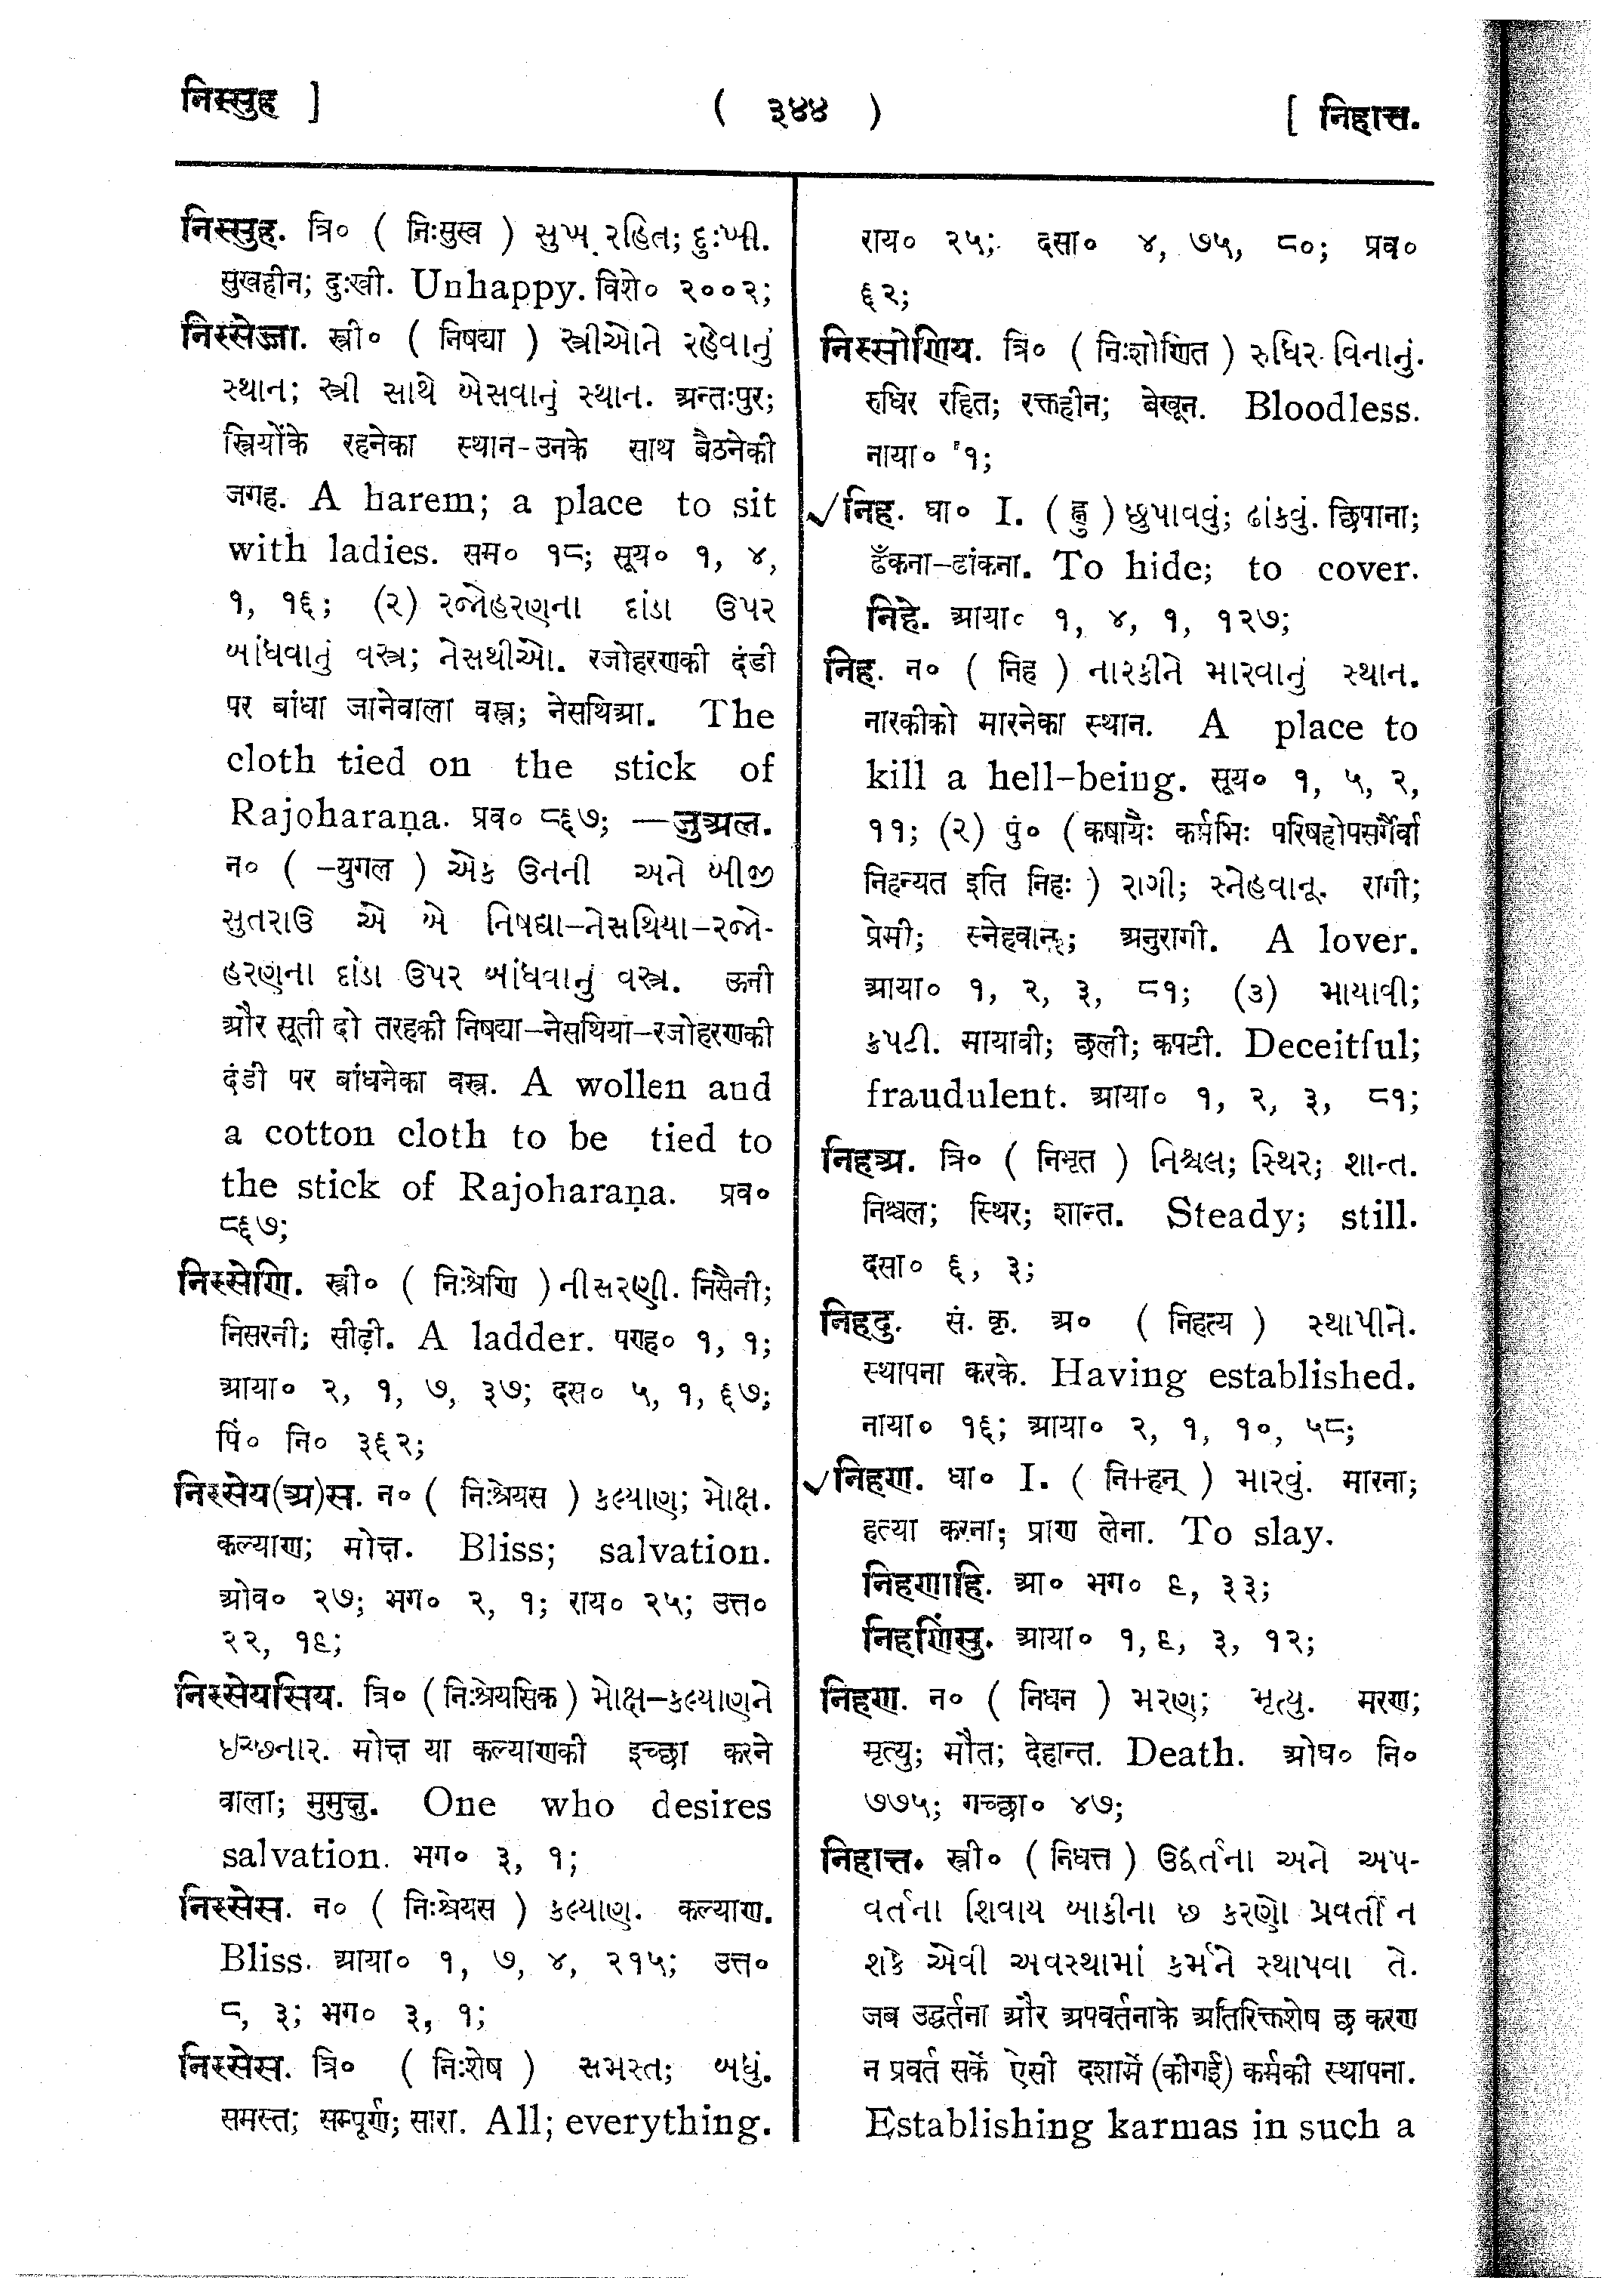 निस्सुह ]
( ३४४ )
[ निहात्त.
निस्सुह. त्रि० ( निःसुख ) સુખ રહિત; દુઃખી.
सुखहीन; दुःखी. Unhappy. विशे० २००२;
निस्सेज्जा. स्त्री० ( निषद्या ) સ્ત્રીઓને રહેવાનું
સ્થાન; સ્ત્રી સાથે બેસવાનું સ્થાન. अन्तःपुर;
स्त्रियोंके रहनेका स्थान-उनके साथ बैठनेकी
जगह. A harem; a place to sit
with ladies. सम० १८; सूय० १, ४,
१, १६; (२) રજોહરણના દાંડા ઉપર
બાંધવાનું વસ્ત્ર; નેસથીઓ. रजोहरणकी दंडी
पर बांधा जानेवाला वस्त्र; नेसथिआ. The
cloth tied on the stick of
Rajoharaṇa. प्रव० ८६७; —जुअल.
न० ( -युगल ) એક ઉનની અને બીજી
સુતરાઉ એ બે નિષદ્યા–નેસથિયા–રજો-
હરણના દાંડા ઉપર બાંધવાનું વસ્ત્ર. ऊनी
और सूती दो तरहकी निषद्या–नेसथिया–रजोहरणकी
दंडी पर बांधनेका वस्त्र. A wollen and
a cotton cloth to be tied to
the stick of Rajoharaṇa. प्रव०
८६७;
निस्सेणि. स्त्री० ( निःश्रेणि ) નીસરણી. निसैनी;
निसरनी; सीढ़ी. A ladder. पण्ह० १, १;
आया० २, १, ७, ३७; दस० ५, १, ६७;
पिं० नि० ३६२;
निस्सेय(अ)स. न० ( निःश्रेयस ) કલ્યાણ; મોક્ષ.
कल्याण; मोक्ष. Bliss; salvation.
ओव० २७; भग० २, १; राय० २५; उत्त०
२२, १६;
निस्सेयसिय. त्रि० ( निःश्रेयसिक ) મોક્ષ–કલ્યાણને
ઇચ્છનાર. मोक्ष या कल्याणकी इच्छा करने
वाला; मुमुक्षु. One who desires
salvation. भग० ३, १;
निस्सेस. न० ( निःश्रेयस ) કલ્યાણ. कल्याण.
Bliss. आया० १, ७, ४, २१५; उत्त०
८, ३; भग० ३, १;
निस्सेस. त्रि० ( निःशेष ) સમસ્ત; બધું.
समस्त; सम्पूर्ण; सारा. All; everything.
राय० २५; दसा० ४, ७५, ८०; प्रव०
६२;
निस्सोणिय. त्रि० ( निःशोणित ) રુધિર વિનાનું.
रुधिर रहित; रक्तहीन; बेखून. Bloodless.
नाया० १;
√निह. धा० I. ( ह्नु ) છુપાવવું; ઢાંકવું. छिपाना;
ढँकना–ढांकना. To hide; to cover.
निहे. आया० १, ४, १, १२७;
निह. न० ( निह ) નારકીને મારવાનું સ્થાન.
नारकीको मारनेका स्थान. A place to
kill a hell-being. सूय० १, ५, २,
११; (२) पुं० ( कषायैः कर्मभिः परिषहोपसर्गैर्वा
निहन्यत इति निहः ) રાગી; સ્નેહવાન્. रागी;
प्रेमी; स्नेहवान्; अनुरागी. A lover.
आया० १, २, ३, ८१; (३) માયાવી;
કપટી. मायावी; छली; कपटी. Deceitful;
fraudulent. आया० १, २, ३, ८१;
निहअ. त्रि० ( निभृत ) નિશ્ચલ; સ્થિર; શાન્ત.
निश्चल; स्थिर; शान्त. Steady; still.
दसा० ६, ३;
निहट्टु. सं. कृ. अ० ( निहत्य ) સ્થાપીને.
स्थापना करके. Having established.
नाया० १६; आया० २, १, १०, ५८;
√निहण. धा० I. ( नि+हन् ) મારવું. मारना;
हत्या करना; प्राण लेना. To slay.
निहणाहि. आ० भग० ६, ३३;
निहणिंसु. आया० १, ६, ३, १२;
निहण. न० ( निधन ) મરણ; મૃત્યુ. मरण;
मृत्यु; मौत; देहान्त. Death. ओघ० नि०
७७५; गच्छा० ४७;
निहात्त. स्त्री० ( निधत्त ) ઉદ્વર્તના અને અપ-
વર્તના શિવાય બાકીના છ કરણો પ્રવર્તી ન
શકે એવી અવસ્થામાં કર્મને સ્થાપવા તે.
जब उद्वर्तना और अपवर्तनाके अतिरिक्तशेष छ करण
न प्रवर्त सकें ऐसी दशामें (कीगई) कर्मकी स्थापना.
Establishing karmas in such a